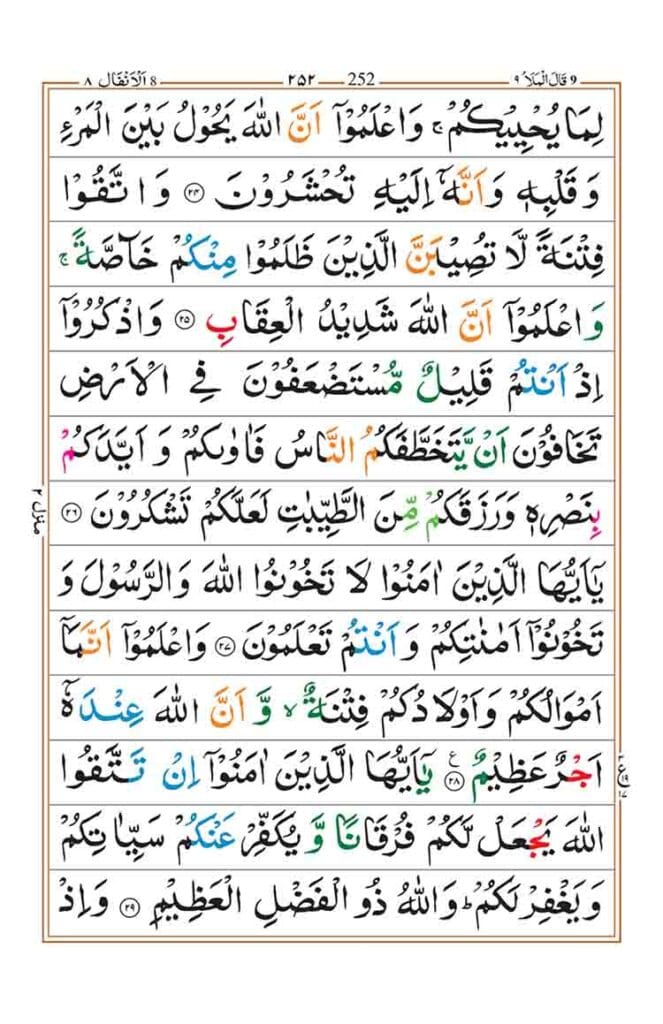 ٩ قَالَ الْمَلَاُ 9 252 ٢٥٢ 8 اَلْاَنْفَال ٨
لِمَا يُحْيِيْكُمْ ۚ وَاعْلَمُوْۤا اَنَّ اللّٰهَ يَحُوْلُ بَيْنَ الْمَرْءِ
وَقَلْبِهٖ وَاَنَّهٗۤ اِلَيْهِ تُحْشَرُوْنَ ۝۲۴ وَاتَّقُوْا
فِتْنَةً لَّا تُصِيْبَنَّ الَّذِيْنَ ظَلَمُوْا مِنْكُمْ خَآصَّةً ۚ
وَاعْلَمُوْۤا اَنَّ اللّٰهَ شَدِيْدُ الْعِقَابِ ۝۲۵ وَاذْكُرُوْۤا
اِذْ اَنْتُمْ قَلِيْلٌ مُّسْتَضْعَفُوْنَ فِي الْاَرْضِ
تَخَافُوْنَ اَنْ يَّتَخَطَّفَكُمُ النَّاسُ فَاٰوٰىكُمْ وَاَيَّدَكُمْ
بِنَصْرِهٖ وَرَزَقَكُمْ مِّنَ الطَّيِّبٰتِ لَعَلَّكُمْ تَشْكُرُوْنَ ۝۲۶
يٰۤاَيُّهَا الَّذِيْنَ اٰمَنُوْا لَا تَخُوْنُوا اللّٰهَ وَالرَّسُوْلَ وَ
تَخُوْنُوْۤا اَمٰنٰتِكُمْ وَاَنْتُمْ تَعْلَمُوْنَ ۝۲۷ وَاعْلَمُوْۤا اَنَّمَاۤ
اَمْوَالُكُمْ وَاَوْلَادُكُمْ فِتْنَةٌ ۙ وَّاَنَّ اللّٰهَ عِنْدَهٗۤ
اَجْرٌ عَظِيْمٌ ۝۲۸ ع يٰۤاَيُّهَا الَّذِيْنَ اٰمَنُوْۤا اِنْ تَتَّقُوا
اللّٰهَ يَجْعَلْ لَّكُمْ فُرْقَانًا وَّيُكَفِّرْ عَنْكُمْ سَيِّاٰتِكُمْ
وَيَغْفِرْ لَكُمْ ؕ وَاللّٰهُ ذُو الْفَضْلِ الْعَظِيْمِ ۝۲۹ وَاِذْ
منزل ۲